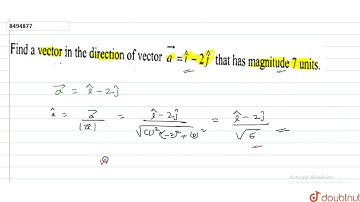 8494877
Find a vector in the direction of vector a⃗ = î − 2ĵ that has magnitude 7 units.
a⃗ = î − 2ĵ
â = a⃗ / |a⃗| = (î − 2ĵ) / √((1)² + (−2)² + (0)²) = (î − 2ĵ) / √5
Activate Windows
doubtnut